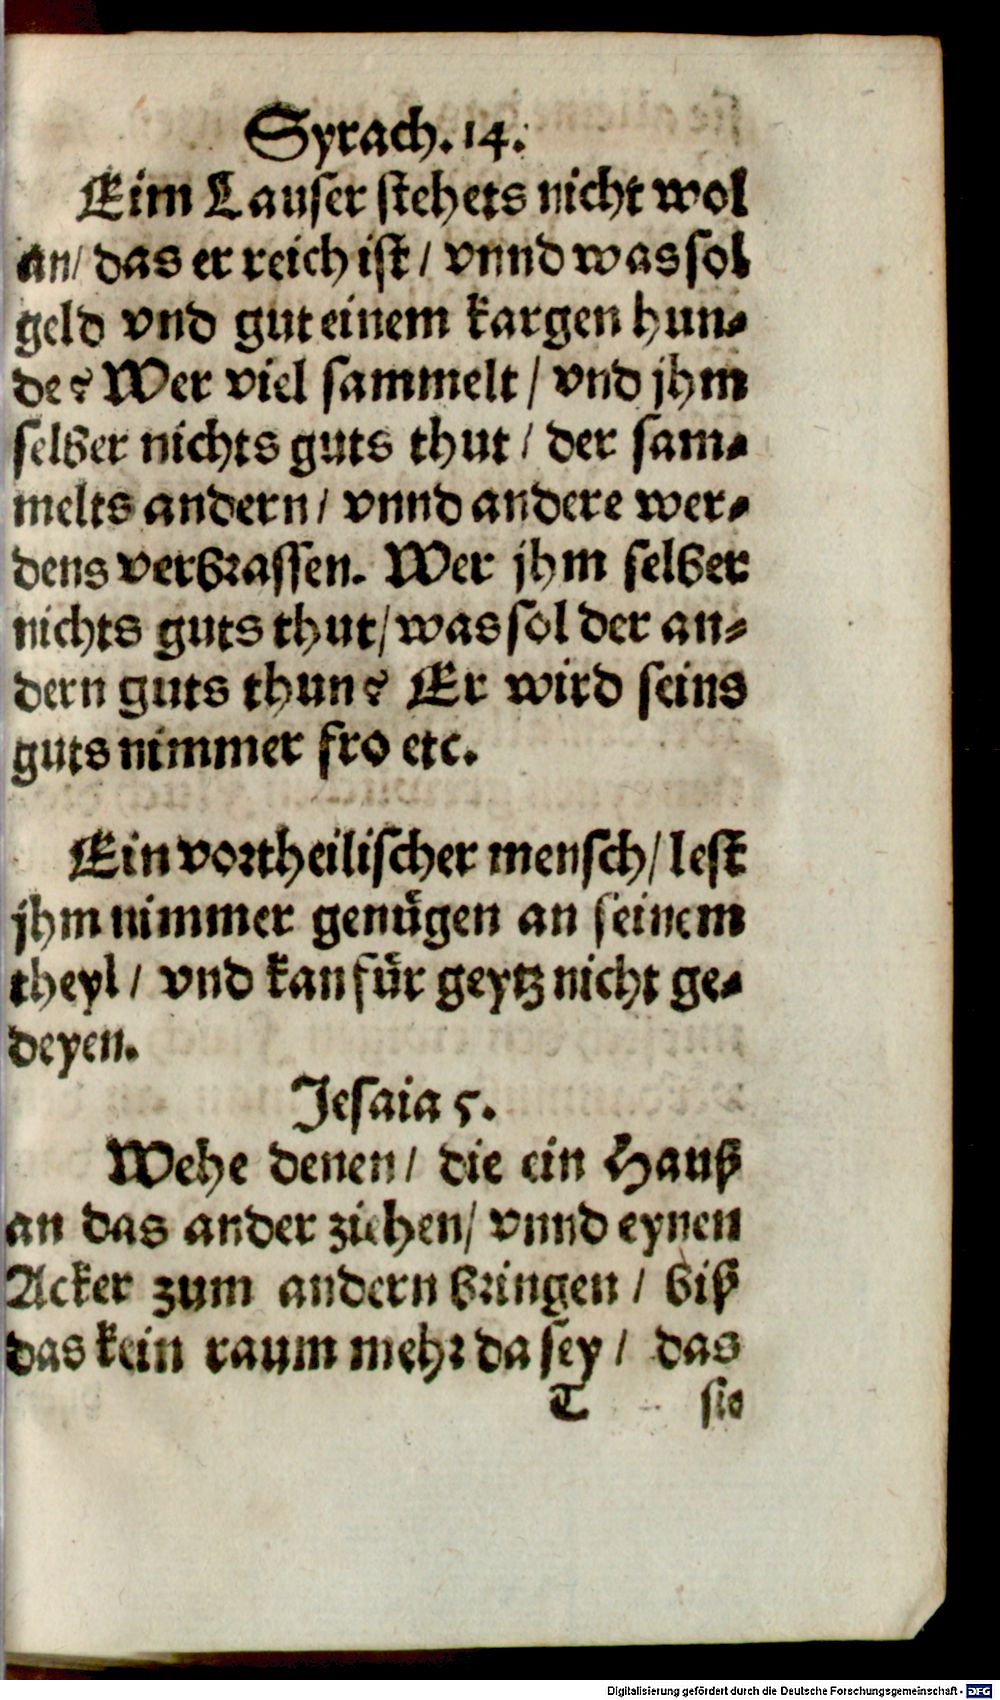 Syrach. 14.
Eim Lauser stehets nicht wol
an/ das er reich ist/ vnnd was sol
geld vnd gut einem kargen hun-
de? Wer viel sammelt/ vnd jhm
selber nichts guts thut/ der sam-
melts andern/ vnnd andere wer-
dens verbrassen. Wer jhm selber
nichts guts thut/ was sol der an-
dern guts thun? Er wird seins
guts nimmer fro etc.
Ein vortheilischer mensch/ lest
jhm nimmer genügen an seinem
theyl/ vnd kan für geytz nicht ge-
deyen.
Jesaia 5.
Wehe denen/ die ein Hauß
an das ander ziehen/ vnnd eynen
Acker zum andern bringen/ biß
das kein raum mehr da sey/ das
T sie
Digitalisierung gefördert durch die Deutsche Forschungsgemeinschaft - DFG